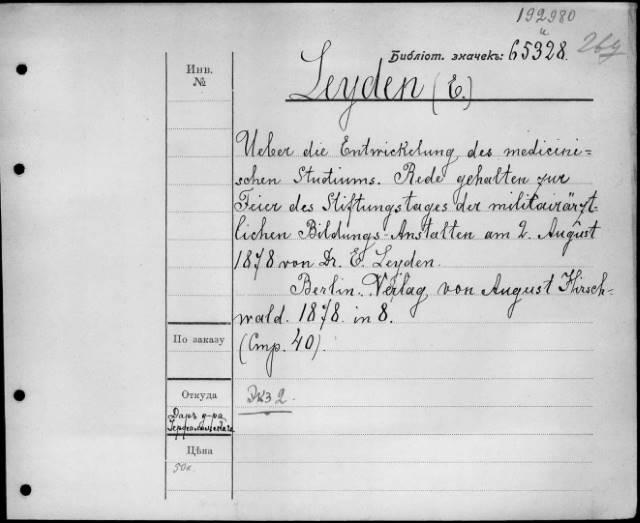 192980
и
Библіот. значекъ: 65328.
Инв.
№
Leyden (E.)
Ueber die Entwickelung des medicini=
schen Studiums. Rede gehalten zur
Feier des Stiftungstages der militairärzt-
lichen Bildungs-Anstalten am 2. August
1878 von Dr. E. Leyden.
Berlin. Verlag von August Hirsch-
wald. 1878. in 8.
По заказу
(Стр. 40).
Откуда
Экз 2.
Даръ д-ра
Цѣна
50к.